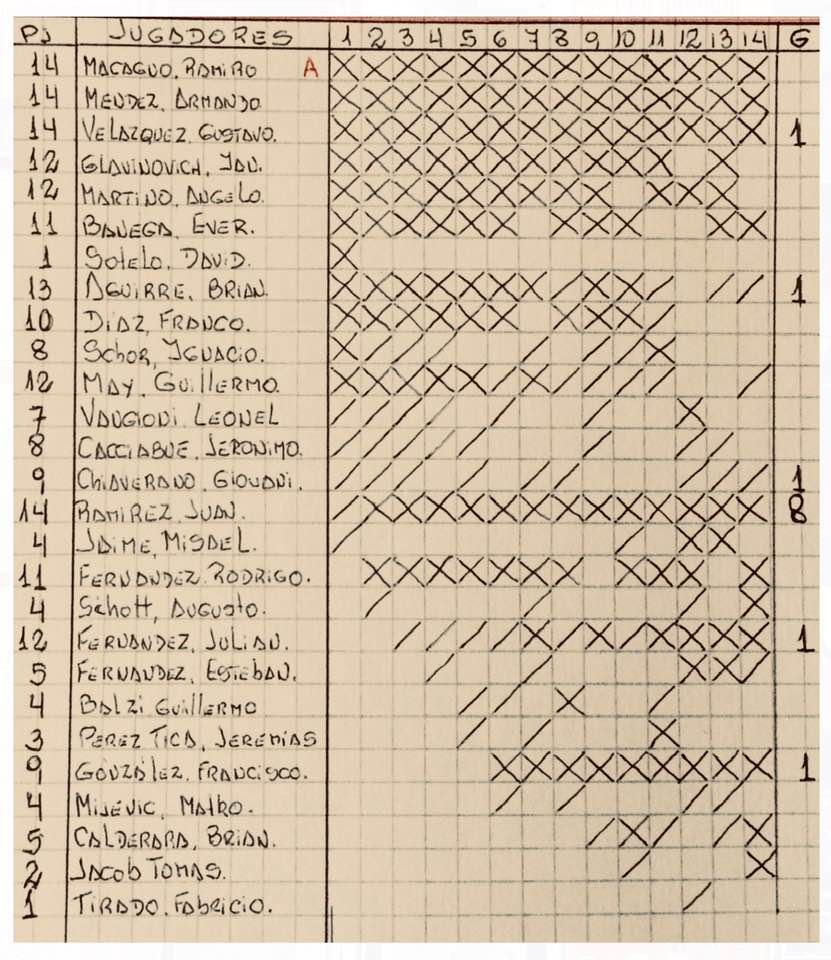 PJ JUGADORES 1 2 3 4 5 6 7 8 9 10 11 12 13 14 G
14 MACAGNO, RAMIRO A
14 MENDEZ, ARMANDO.
14 VELAZQUEZ, GUSTAVO. 1
12 GLAVINOVICH, IAN.
12 MARTINO, ANGELO.
11 BANEGA, EVER.
1 SOTELO, DAVID.
13 AGUIRRE, BRIAN. 1
10 DIAZ, FRANCO.
8 SCHOR, IGNACIO.
12 MAY, GUILLERMO.
7 VANGIONI LEONEL
8 CACCIABUE, JERONIMO.
9 CHIAVERANO, GIOVANI. 1
14 RAMIREZ, JUAN. 8
4 JAIME, MISAEL.
11 FERNANDEZ, RODRIGO.
4 SCHOTT, AUGUSTO.
12 FERNANDEZ, JULIAN. 1
5 FERNANDEZ, ESTEBAN.
4 BALZI GUILLERMO
3 PEREZ TICA, JEREMIAS
9 GONZALEZ, FRANCISCO. 1
4 MIJEVIC, MATKO.
5 CALDERARA, BRIAN.
2 JACOB TOMAS.
1 TIRADO, FABRICIO.